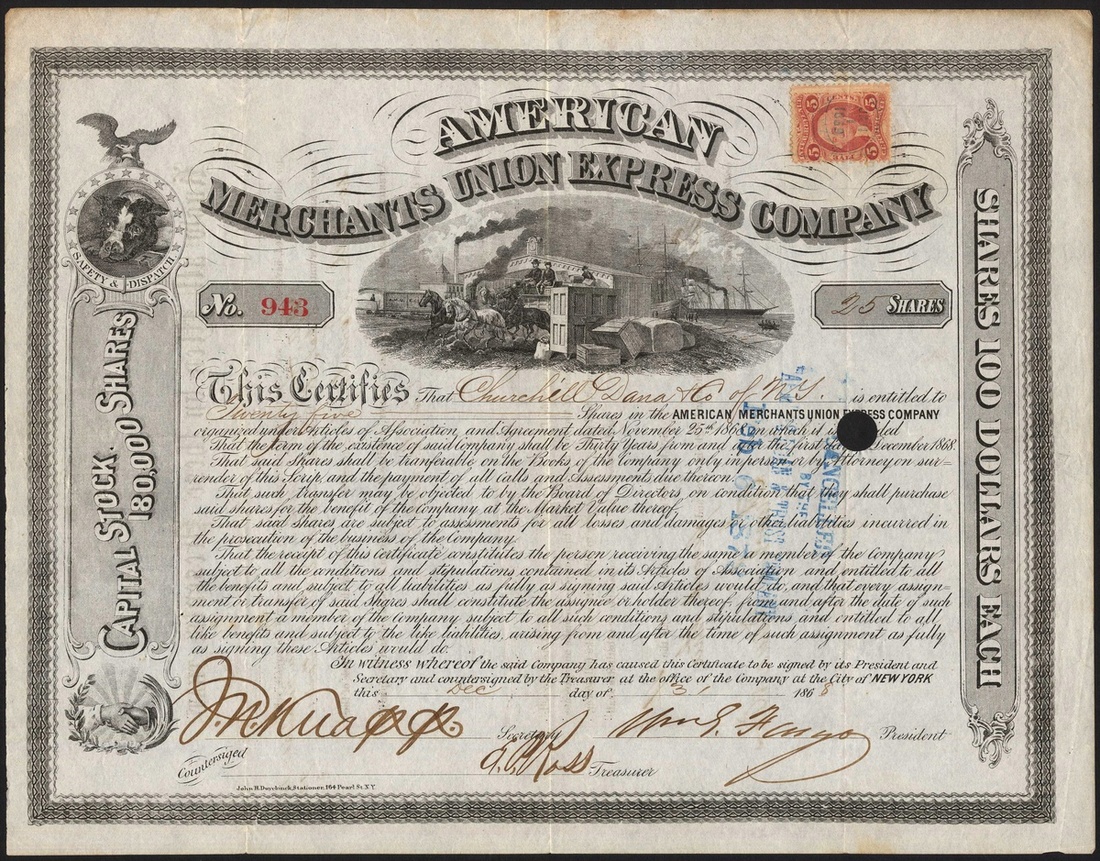 AMERICAN
MERCHANTS UNION EXPRESS COMPANY
5 5
5 5
SAFETY & DISPATCH
No. 943
25 SHARES
CAPITAL STOCK.
180,000 SHARES
SHARES 100 DOLLARS EACH
This Certifies That Churchill Dana & Co of N.Y. is entitled to
Twenty five Shares in the AMERICAN MERCHANTS UNION EXPRESS COMPANY
organized under Articles of Association, and Agreement dated November 25th 1868, in which it is
That the form of the existence of said Company shall be Thirty Years from and after the first December 1868.
That said Shares shall be tranferable on the Books of the Company only in person or by Attorney on sur-
render of this Scrip and the payment of all Calls and Assessments due thereon.
That such transfer may be objected to by the Board of Directors, on condition that they shall purchase
said shares for the benefit of the Company at the Market Value thereof.
That said Shares are subject to assessments for all losses and damages or other liabilities incurred in
the prosecution of the business of the Company.
That the receipt of this Certificate constitutes the person receiving the same a member of the Company
subject to all the conditions and stipulations contained in its Articles of Association and entitled to all
the benefits and, subject to all liabilities, as fully as signing said Articles would do, and that every assign-
ment or transfer of said Shares shall constitute the assignee or holder thereof, from and after the date of such
assignment a member of the Company, subject to all such conditions and stipulations, and entitled to all
like benefits and subject to the like liabilities, arising from and after the time of such assignment as fully
as signing these Articles would do.
In witness whereof the said Company has caused this Certificate to be signed by its President and
Secretary and countersigned by the Treasurer at the office of the Company at the City of NEW YORK
this Dec day of 31 1868
J.N. Knapp Secretary Wm G. Fargo President
Countersigned E.C. Ross Treasurer
John H. Duyckinck, Stationer, 164 Pearl St. N.Y.
CANCELLED
BY THE